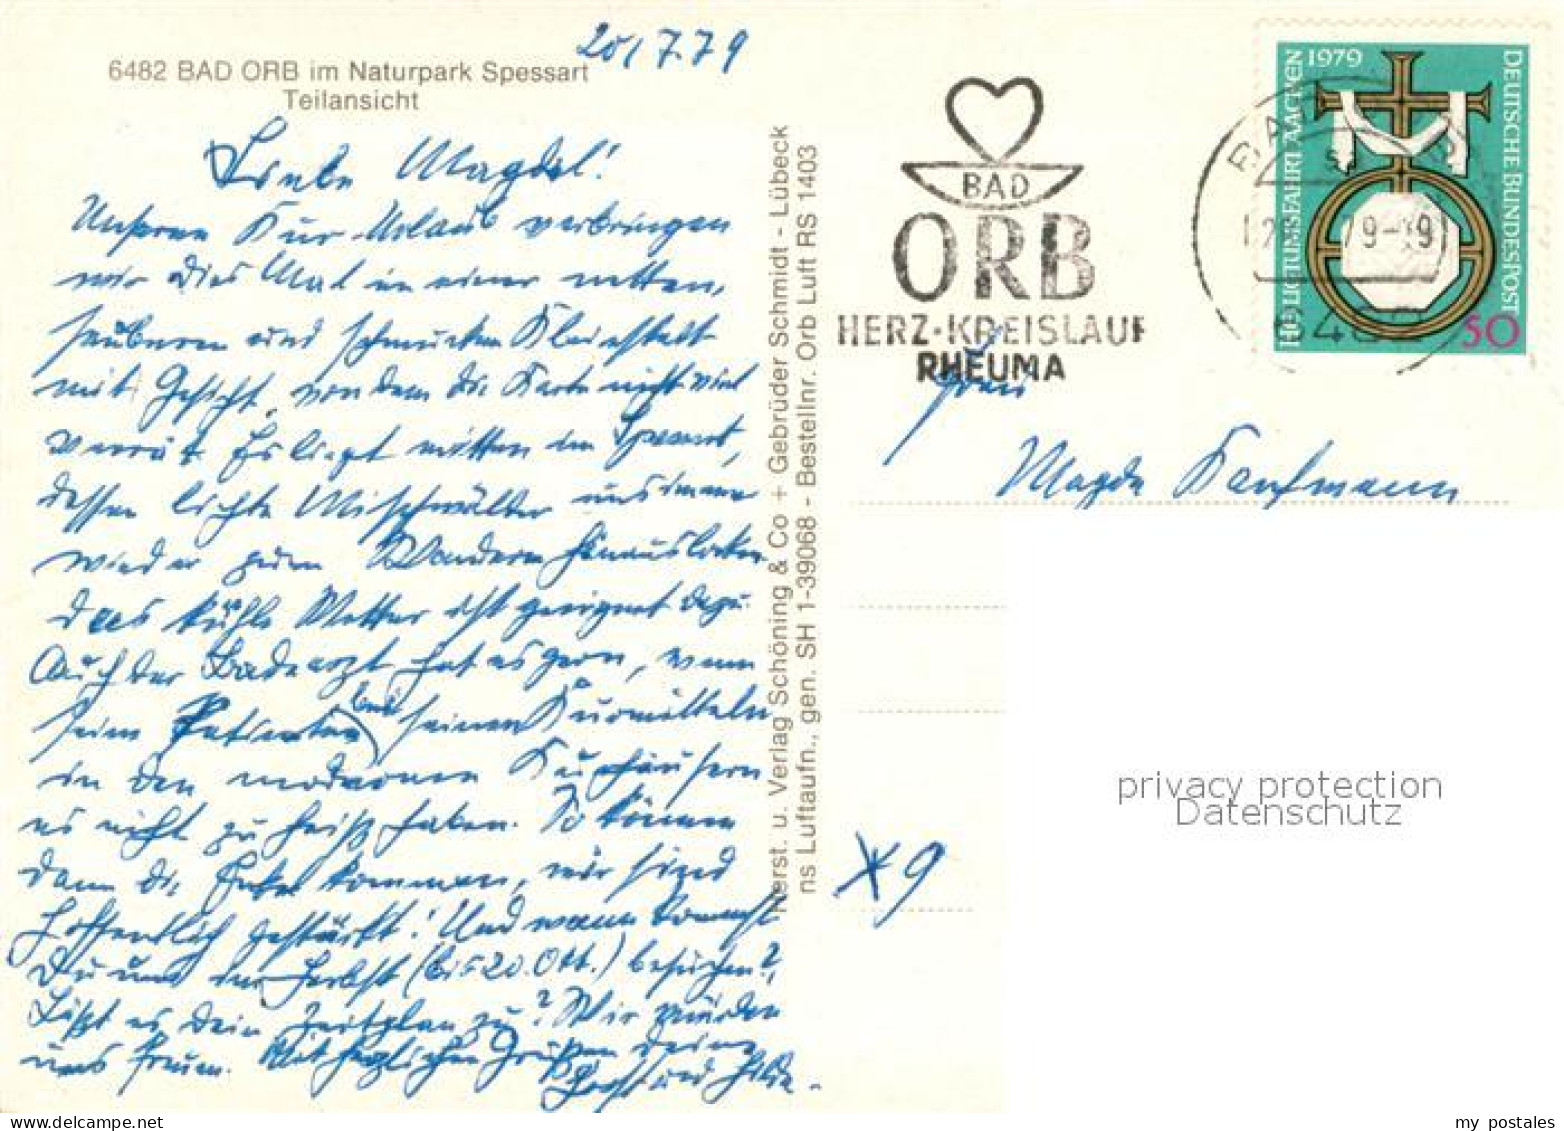 20/7.79
6482 BAD ORB im Naturpark Spessart
Teilansicht
Liebe Magdel!
Unseren Kur-Urlaub verbringen
wir dies Mal in einer netten,
sauberen und schmucken Kleinstadt
mit Gesicht, von dem die Karte nicht viel
verrät. Es liegt mitten im Spessart,
dessen lichte Mischwälder uns immer
wieder zum Wandern hinauslocken
das kühle Wetter ist geeignet dazu.
Auch der Badearzt hat es gern, wenn
seine Patienten bei seinen Kurmitteln
in den modernen Kurhäusern
es nicht zu heiß haben. So können
dann die Enkel kommen, wir sind
hoffentlich gestärkt! Und wann kommst
Du uns im Herbst (bis 20. Okt.) besuchen?
Läßt es Dein Zeitplan zu? Wir würden
uns freuen. Mit herzlichen Grüßen Deine
Horst und Hilde.
Herst. u. Verlag Schöning & Co + Gebrüder Schmidt - Lübeck
ns Luftaufn., gen. SH 1-39068 - Bestellnr. Orb Luft RS 1403
BAD
ORB
HERZ·KREISLAUF
RHEUMA
BAD
9-19
HEILIGTUMSFAHRT AACHEN 1979
DEUTSCHE BUNDESPOST
50
Frau
Magda Kaufmann
privacy protection
Datenschutz
* 9
my postales